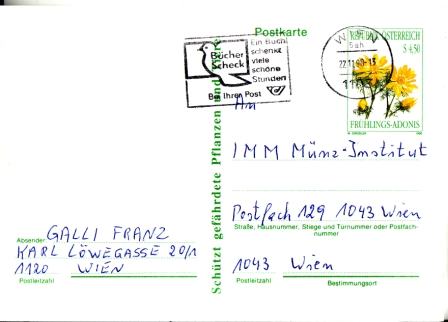 Postkarte
Bücher
Scheck
Ein Buch
schenkt
viele
schöne
Stunden
Bei Ihrer Post
WIEN
22.11.90-13
REPUBLIK ÖSTERREICH
S 4,50
FRÜHLINGS-ADONIS
1990
Schützt gefährdete Pflanzen und Tiere
An
IMM Münz-Institut
Postfach 129 1043 Wien
Straße, Hausnummer, Stiege und Türnummer oder Postfach-
nummer
1043 Wien
Postleitzahl Bestimmungsort
GALLI FRANZ
Absender
KARL LÖWEGASSE 20/1
1120 WIEN
Postleitzahl